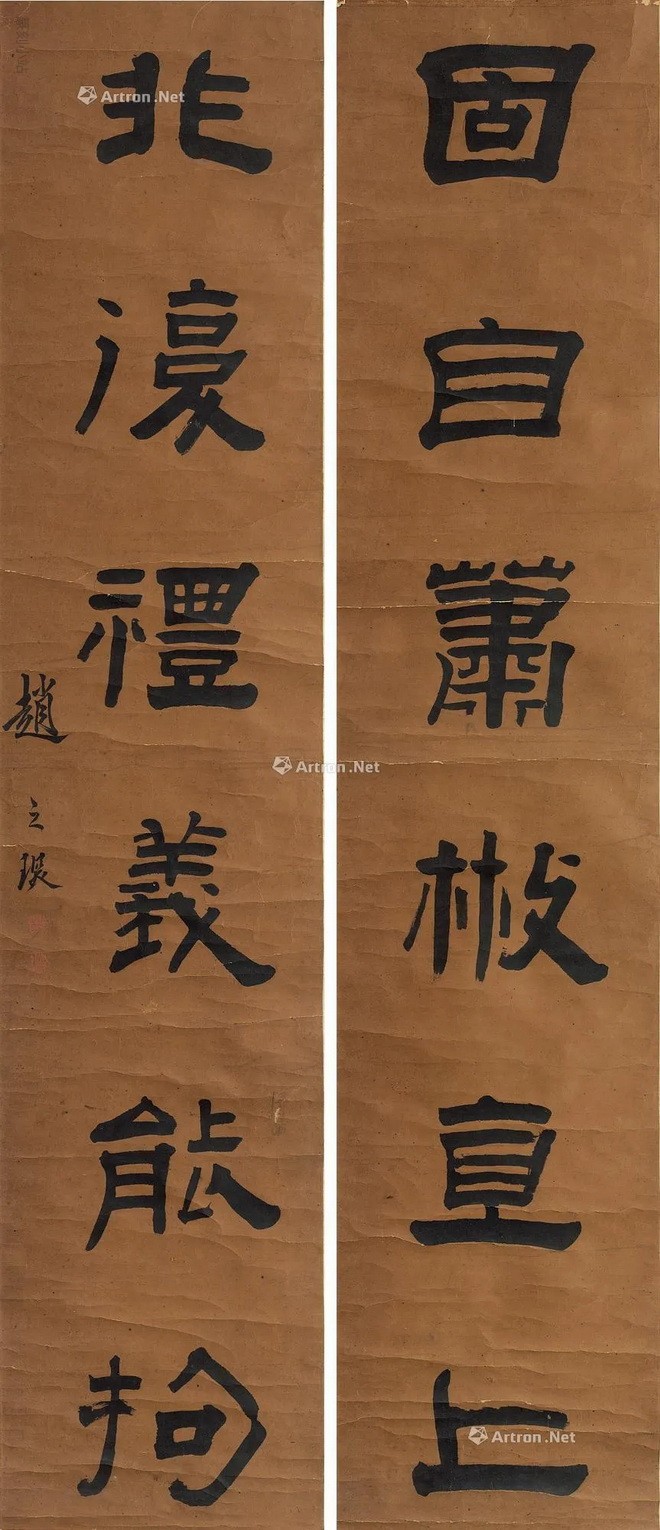 固自蕭㪔直上
非復禮義能拘
趙之琛
Artron.Net
Artron.Net
Artron.Net